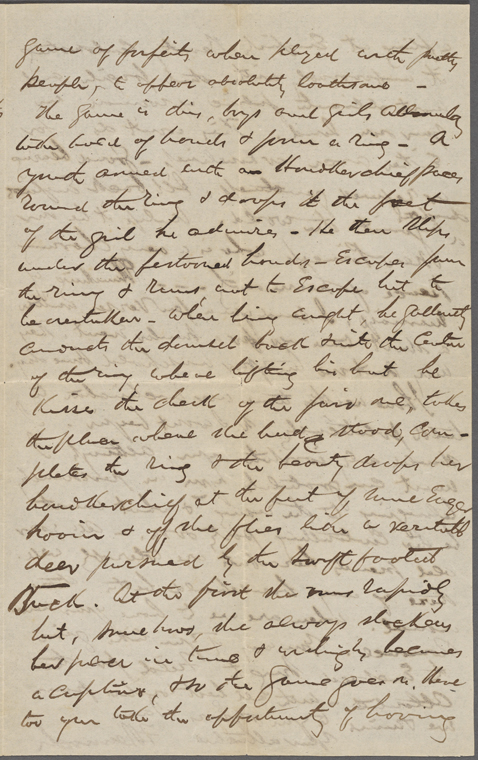 game of forfeits when played with pretty
people, to appear absolutely loathsome -
The game is this, boys and girls alternately
take hold of hands & form a ring - A
youth armed with a Handkerchief paces
round the ring & drops it the feet
of the girl he admires - He then slips
under the festooned hands - Escapes from
the ring & runs not to Escape but to
be overtaken - When being caught, he gallantly
conducts the damsel back into the Center
of the ring, where lifting his hat he
Kisses the cheek of the fair one, takes
the place where she had stood, Com-
pletes the ring & the beauty drops her
handkerchief at the feet of some Eager
& off she flies like a veritable
deer pursued by the swift footed
Buck. At the first she runs rapidly
but, somehow, she always slackens
her pace in time & willingly becomes
a captive, & so the Game goes on. Here
too you take the opportunity of having